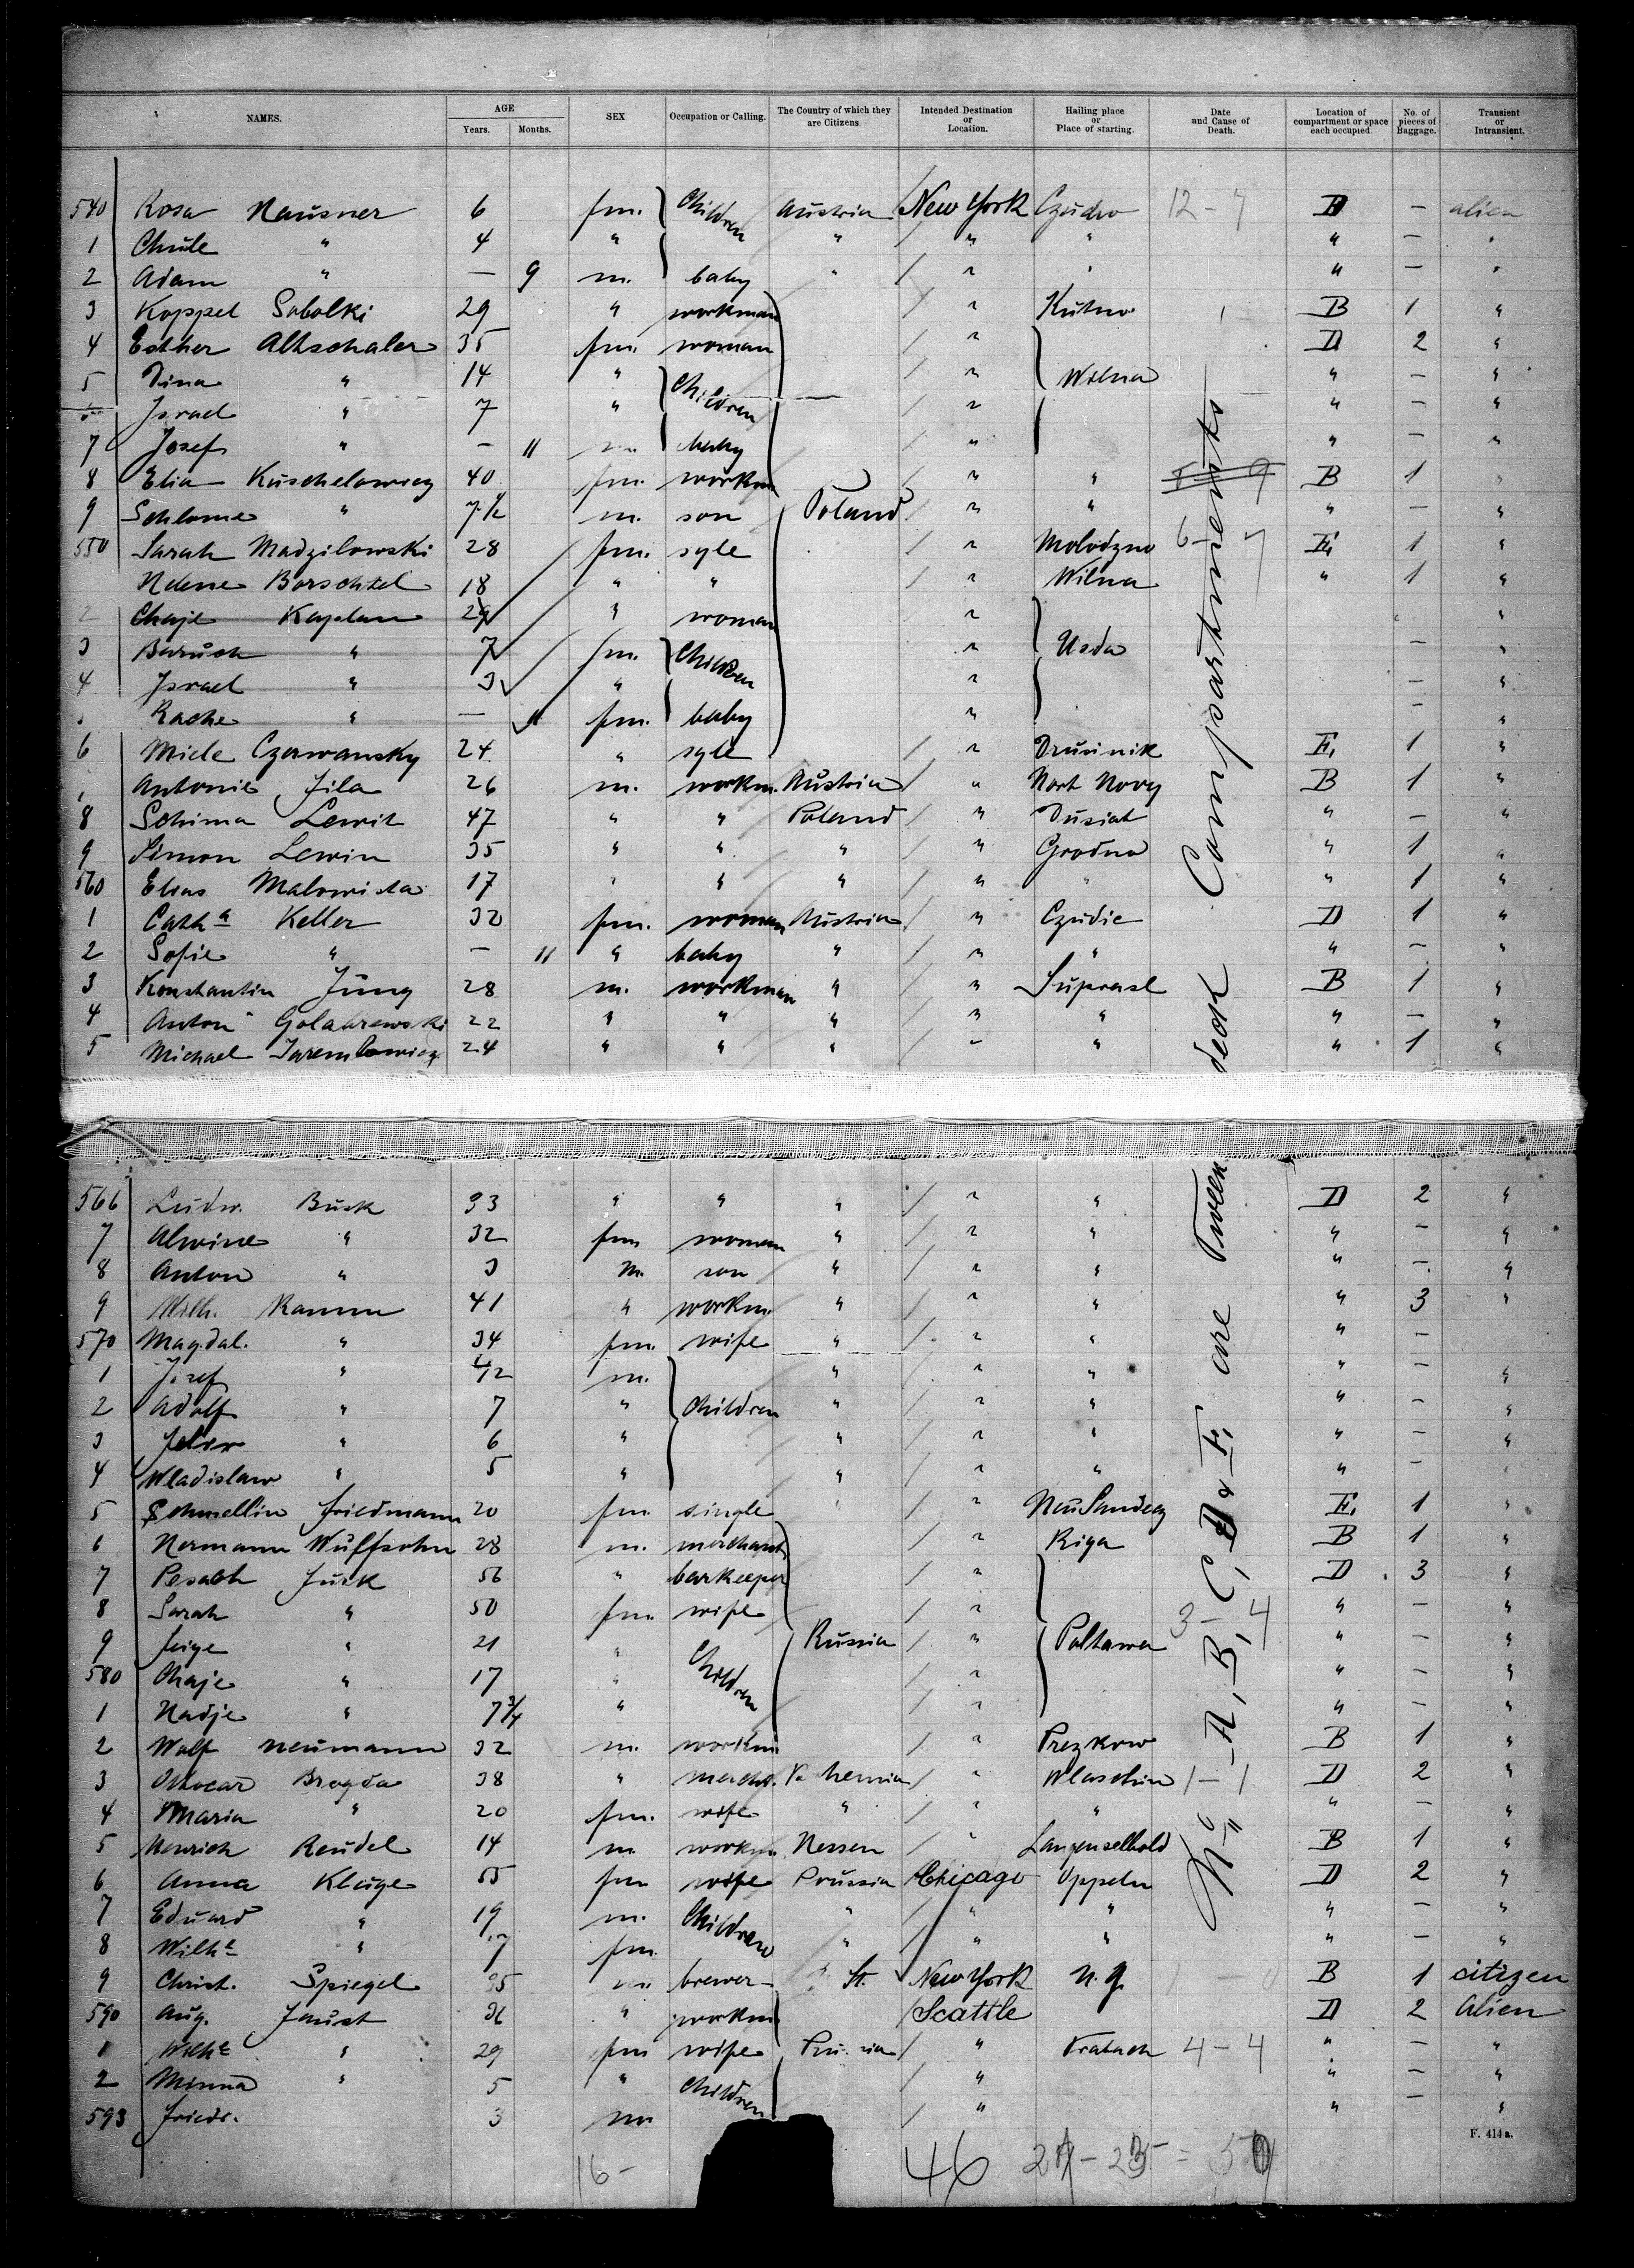 NAMES. AGE Years. Months. SEX Occupation or Calling. The Country of which they are Citizens. Intended Destination or Location. Hailing place or Place of starting. Date and Cause of Death. Location of compartment or space each occupied. No. of pieces of Baggage. Transient or Intransient.
540 Rosa Nausner 6 fm. Children Austria New York Czudno 12-7 D — alien
1 Chule " 4 " " " " " — "
2 Adam " — 9 m. baby " " " " — "
3 Koppel Sobolki 29 " workman " Kutno B 1 "
4 Esther Altschaler 35 fm. woman " D 2 "
5 Dina " 14 " Children " Wilna " — "
6 Israel " 7 " " " — "
7 Josef " — 11 m. baby " " — "
8 Elia Kuschelowicz 40 fm. workm. " " B 1 "
9 Schlome " 7½ m. son Poland " " " — "
550 Sarah Madzilowski 28 fm. sgle " Molodzno 6-7 E, 1 "
Nehme Borschtel 18 " " " Wilna " 1 "
2 Chaje Kaplan 29 " woman " "
3 Baruch " 7 fm. Children " Usda — "
4 Israel " 3 " " — "
Rache " — 11 fm. baby " — "
6 Miele Czerwansky 24 " sgle " Drusinik E, 1 "
Antonie Fila 26 m. workm. Austria " Nort Novy B 1 "
8 Schima Lewit 47 " " Poland " Dusiat " — "
9 Simon Lewin 35 " " " " Grodno " 1 "
560 Elias Malowista 17 " " " " " " 1 "
1 Cath a Keller 32 fm. woman Austria " Czudie D 1 "
2 Sofie " — 11 " baby " " " " — "
3 Konstantin Jung 28 m. workman " " Suprasl B 1 "
4 Anton Golakrewski 22 " " " " " " — "
5 Michael Jaremlowicz 24 " " " " " " 1 "
566 Ludw. Busk 33 " " " " " D 2 "
7 Alwine " 32 fm woman " " " " — "
8 Anton " 3 m. son " " " " — "
9 Wilh. Ramm 41 " workm. " " " " 3 "
570 Magdal. " 34 fm. wife " " " " —
1 Josef " m. " " " " — "
2 Adolf " 7 " Children " " " " — "
3 " 6 " " " " " — "
4 Wladislaw " 5 " " " " " —
5 Schmellin Friedmann 20 fm. single " Neu Sandez E, 1 "
6 Hermann Wulfsohn 28 m. merchant " Riga B 1 "
7 Pesach Jusk 56 " barkeeper " D 3 "
8 Sarah " 50 fm. wife " " — "
9 Feige " 21 " Russia " Poltawa 3-4 " — "
580 Chaje " 17 " Children " " — "
1 Nadje " 7¾ " " " — "
2 Wolf Neumann 32 m. workm. " Prezkow B 1 "
3 Ottocar Brogda 38 " mercht. " Wlaschin 1-1 D 2 "
4 Maria " 20 fm. wife " " " " — "
5 Henrich Reudel 14 m workm. Hessen " Langenselbold B 1 "
6 Anna Kluge 55 fm wife Prussia Chicago Oppeln D 2 "
7 Eduard " 19 m. Children " " " " — "
8 Wilh e " 7 fm. " " " " — "
9 Christ. Spiegel 35 m. brewer St. New York N.Y. B 1 citizen
590 Aug. Faust 36 " workm Seattle D 2 Alien
1 Wilh e " 29 fm wife " 4-4 " — "
2 Minna " 5 " Children " " — "
593 Friedr. 3 m. " " — "
No A, B, C, D & E, are Tween deck Compartments
F. 414 a.
16- 46